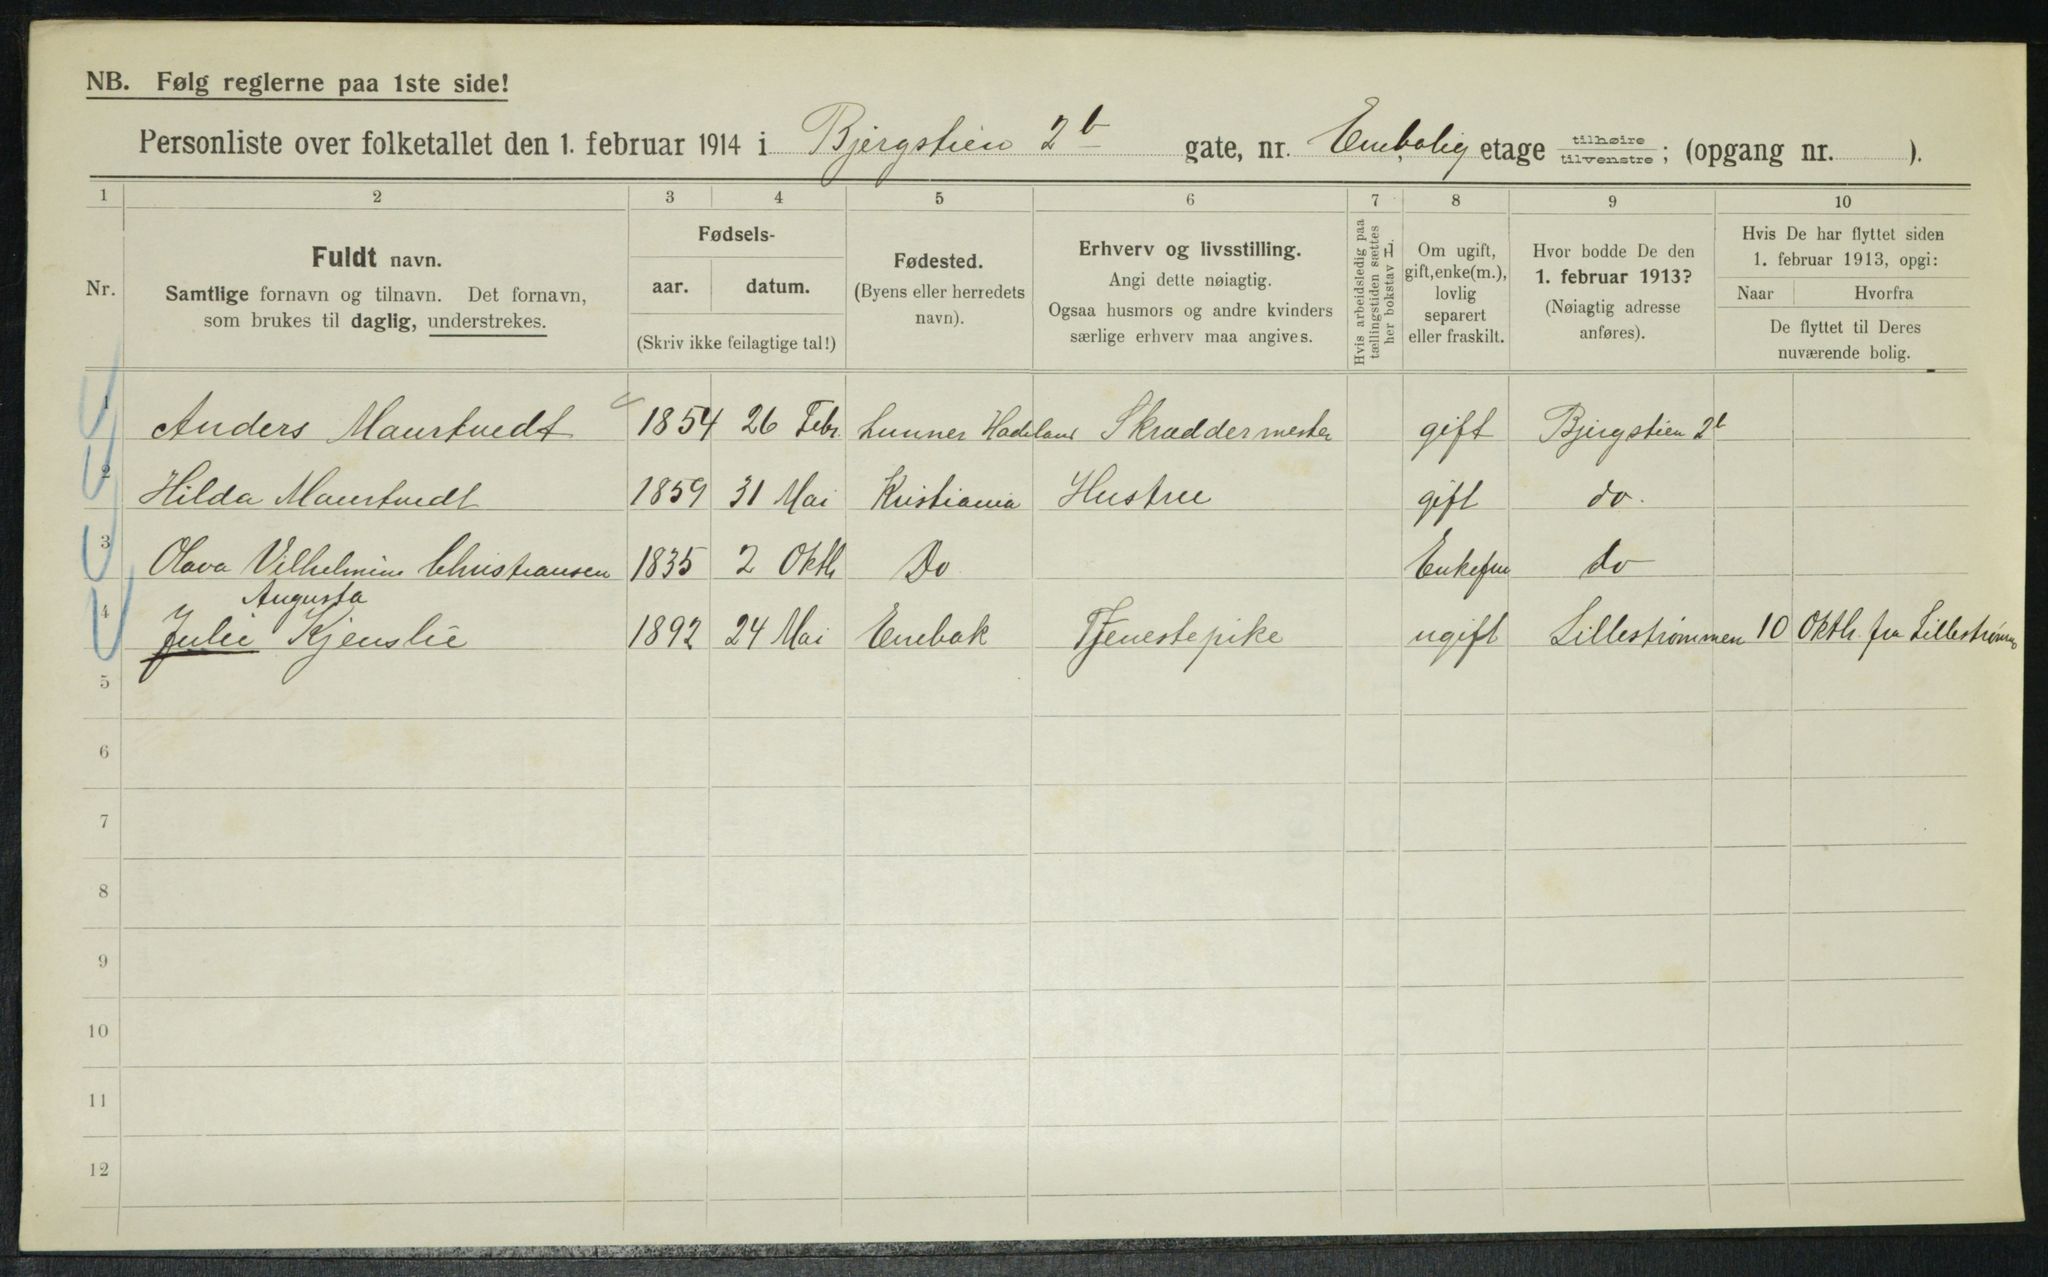 NB. Følg reglerne paa 1ste side!
Personliste over folketallet den 1. februar 1914 i Bjergstien 2b gate, nr. Enebolig etage tilhøire tilvenstre; (opgang nr. ).
1 2 3 4 5 6 7 8 9 10
Nr.
Fuldt navn.
Samtlige fornavn og tilnavn. Det fornavn,
som brukes til daglig, understrekes.
Fødsels-
aar. datum.
(Skriv ikke feilagtige tal!)
Fødested.
(Byens eller herredets
navn).
Erhverv og livsstilling.
Angi dette nøiagtig.
Ogsaa husmors og andre kvinders
særlige erhverv maa angives.
Hvis arbeidsledig paa
tællingstiden sættes
her bokstav L.
Om ugift,
gift, enke(m.),
lovlig
separert
eller fraskilt.
Hvor bodde De den
1. februar 1913?
(Nøiagtig adresse
anføres).
Hvis De har flyttet siden
1. februar 1913, opgi:
Naar Hvorfra
De flyttet til Deres
nuværende bolig.
1 Anders Maurtvedt 1854 26 Febr. Lunner Hadeland Skræddermester gift Bjergstien 2b
2 Hilda Maurtvedt 1859 31 Mai Kristiania Hustru gift do.
3 Olava Vilhelmine Christiansen 1835 2 Oktb Do Enkefru do
Augusta
4 Julie Kjenslie 1892 24 Mai Enebak Tjenestepike ugift Lillestrømmen 10 Oktb. fra Lillestrømmen
5
6
7
8
9
10
11
12